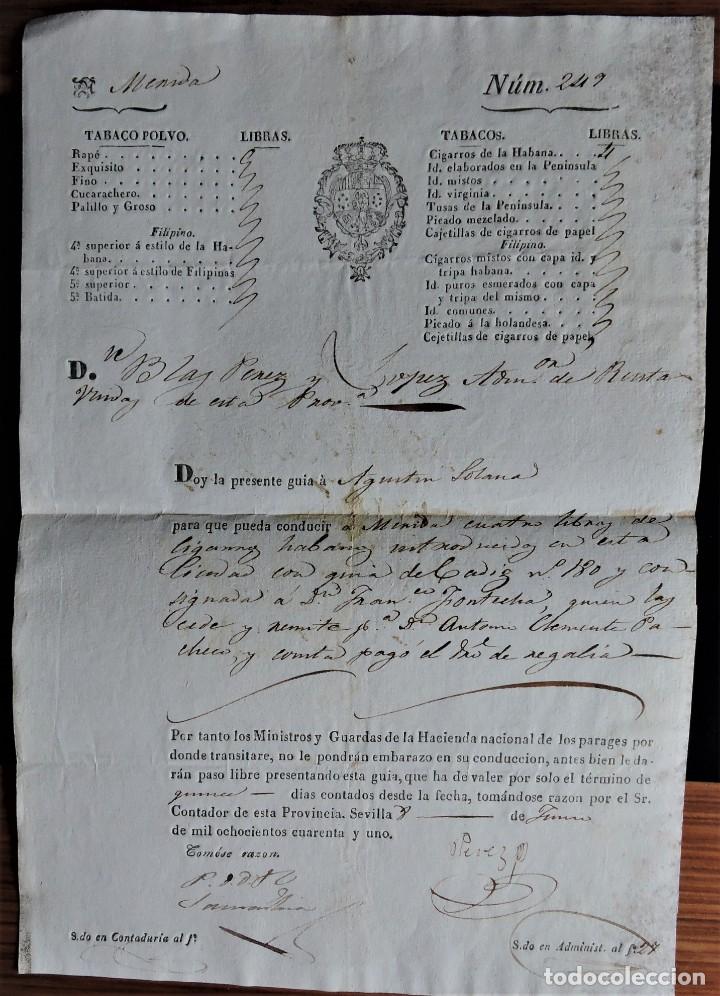 A Merida
Núm. 249
TABACO POLVO. LIBRAS.
Rapé . . . . . . . . .
Exquisito . . . . . . .
Fino . . . . . . . . .
Cucarachero. . . . . .
Palillo y Groso . . . . .
Filipino.
4º superior á estilo de la Ha-
bana. . . . . . . . .
4º superior á estilo de Filipinas
5º superior . . . . . . .
5º Batida. . . . . . . .
TABACOS. LIBRAS.
Cigarros de la Habana. . . 4
Id. elaborados en la Península
Id. mistos . . . . . . .
Id. virginia. . . . . . .
Tusas de la Península. . . .
Picado mezclado. . . . .
Cajetillas de cigarros de papel
Filipino.
Cigarros mistos con capa id. y
tripa habana. . . . . .
Id. puros esmerados con capa
y tripa del mismo . . . .
Id. comunes. . . . . . .
Picado á la holandesa. . . .
Cejetillas de cigarros de papel
D.n Blas Perez y Lopez Adm.on de Renta
Unidas de esta Prov.a
Doy la presente guia à Agustin Solana
para que pueda conducir á Merida cuatro libras de
cigarros habanos introducidos en esta
Ciudad con guia de Cadiz nº 180 y con-
signada á D.n Fran.co Fontecha, quien las
cede y remite p.a D.n Antonio Clemente Pa-
checo, y consta pagó el de regalia
Por tanto los Ministros y Guardas de la Hacienda nacional de los parages por
donde transitare, no le pondrán embarazo en su conduccion, antes bien le da-
rán paso libre presentando esta guia, que ha de valer por solo el término de
quince dias contados desde la fecha, tomándose razon por el Sr.
Contador de esta Provincia. Sevilla 8 de
de mil ochocientos cuarenta y uno.
Tomóse razon.
Perez
S.do en Contaduría al fº
S.do en Administ. al fº 27
todocoleccion.net